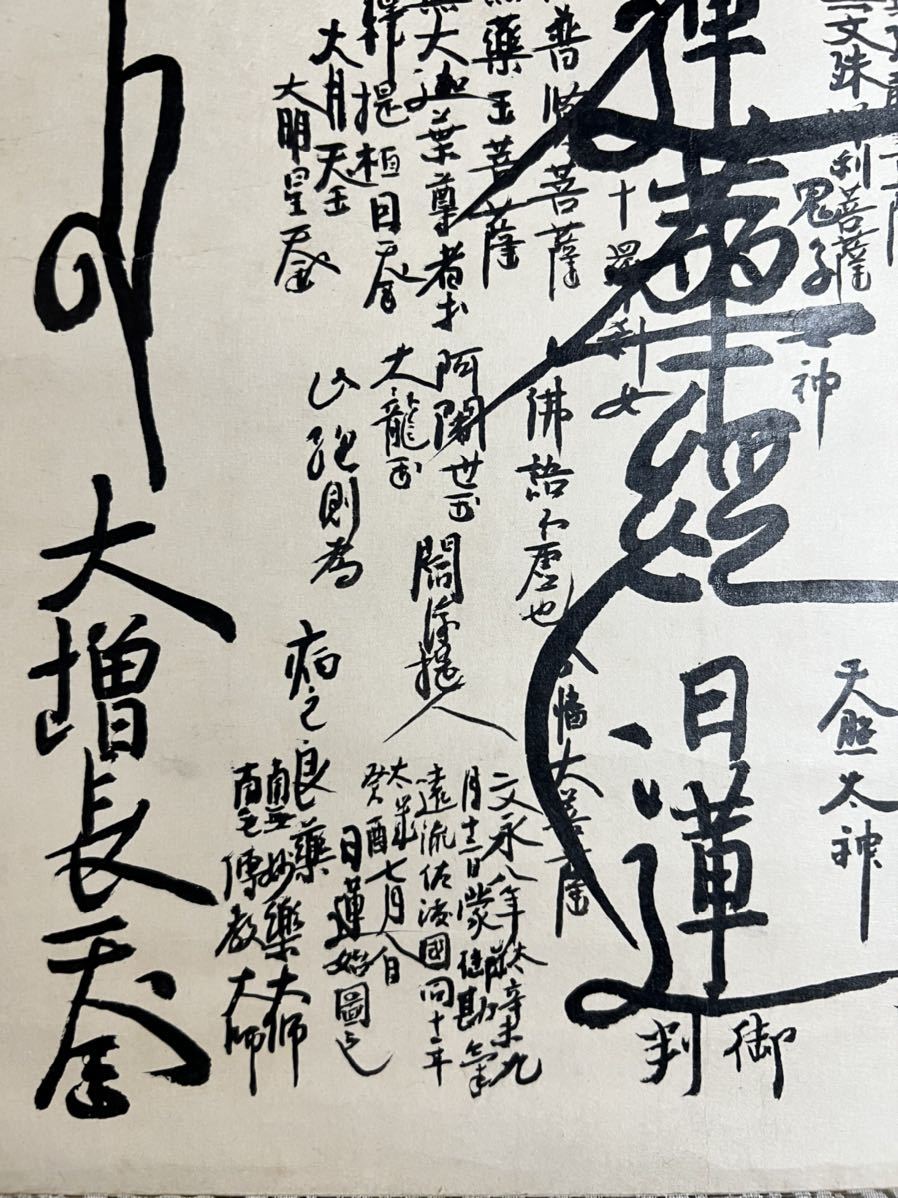 文珠師利菩薩
鬼子
女神
天照太神
蓮華經
日蓮
御判
十羅刹女
普賢菩薩
佛語不虚也
八幡大菩薩
藥王菩薩
大迦葉尊者
阿闍世王
閻浮提人
釋提桓日天金
大龍王
大月天王
大明星天金
此經則為
病之良藥
文永八年太才辛未九
月十二日蒙御勘氣
遠流佐渡國同十年
太才癸酉七月八日
日蓮始圖之
南無妙樂大師
南無傳教大師
大増長天金